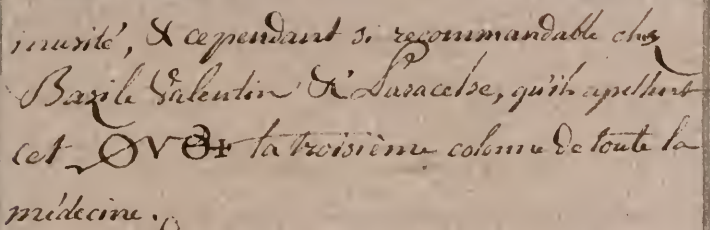 inusité, & cependant si recommandable chez
Bazile Valentin & Paracelse, qu'ils apellent
cet la troisième colonne de toute la
médecine.